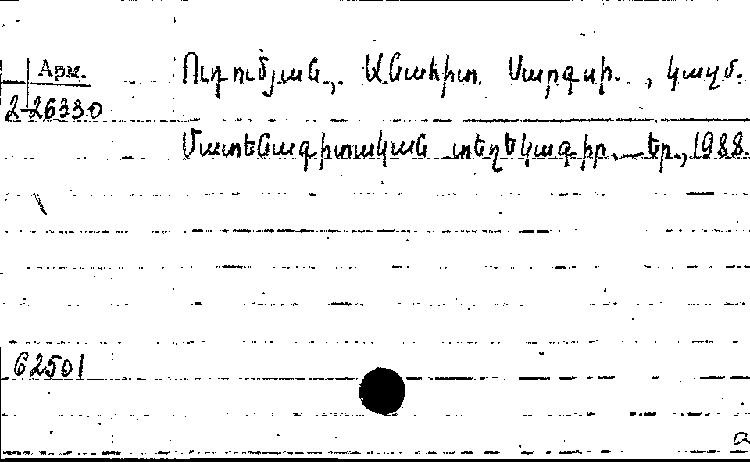 Арм.
2-26330
Ուդումյան, Անահիտ Սարգսի. , կազմ.
Մատենագիտական տեղեկագիր. — Եր., 1988.
62501